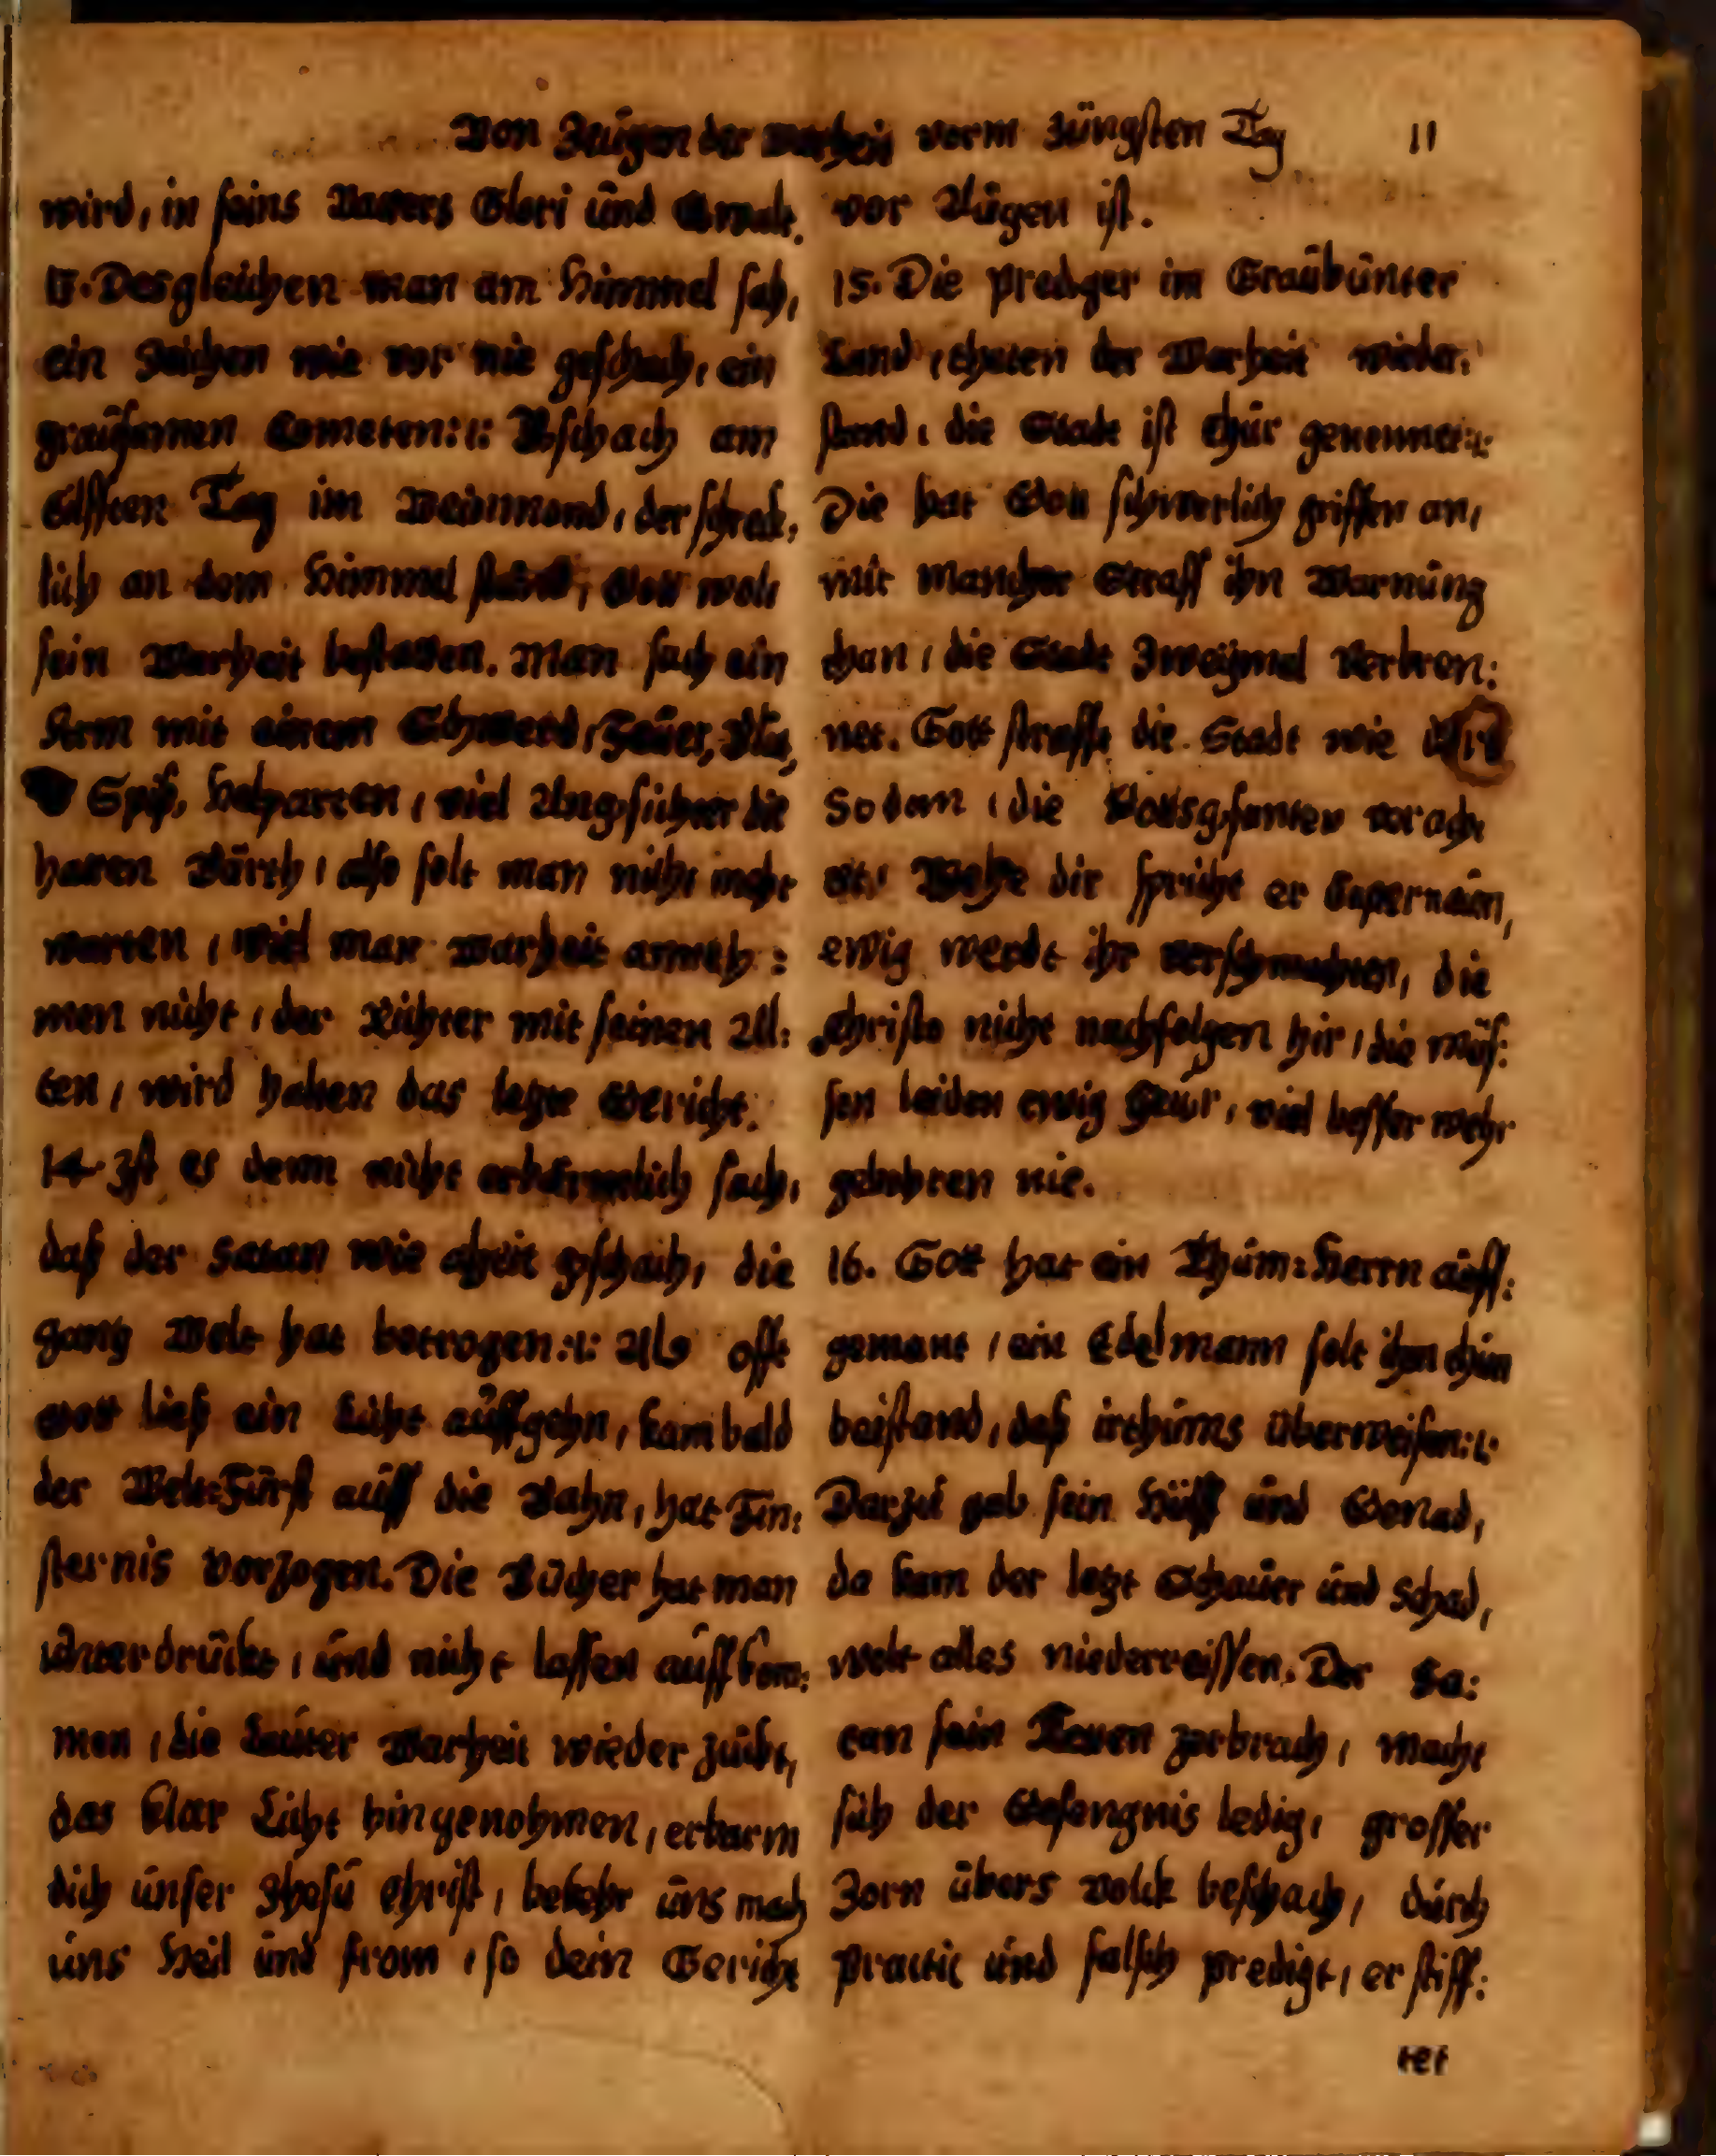 Von Zeügen der Warheit vorm Jüngsten Tag 11
wird, in seins Vatters Glori ünd Gwalt.
13. Desgleichen man am Himmel sah,
ein Zeichen wie vor nie geschach, ein
graüsamen Cometen:,: Bschach am
Eilfften Tag im Weinmond, der schreck,
lich an dem Himmel stünd, Gott wolt
sein Warheit bestatten. Man sach ein
Arm mit einem Schwerd, Feüer, Blut,
Spiß, Helparten, viel Angsichter die
hatten Bärth, also solt man nicht mehr
warten, Wiel man Warheit anneh:
men nicht, der Richter mit seinen All:
ten, wird halten das letzte Gericht.
14. Ist es denn nicht erbärmlich sach,
daß der Satan wie alzeit gschach, die
gantz Welt hat betrogen:,: Als offt
Gott ließ ein Licht aüffgehn, kam bald
der Welt-Fürst aüff die Bahn, hat Fin:
sternis vorzogen. Die Bücher hat man
ünterdrückt, ünd nicht lassen aüffkom:
men, die Laüter Warheit wieder zückt,
das klar Licht hingenohmen, erbarm
dich ünser Jhesü Christ, bekehr üns mach
üns Heil ünd from, so dein Gericht
vor Aügen ist.
15. Die Prediger im Graübünter
Land, thaten der Warheit wieder:
stand, die Stadt ist Chür genennet:,:
Die hat Gott schwerlich griffen an,
mit mancher Straff ihn Warnüng
than, die Stadt Zweÿmal Verbren:
net. Gott strafft die Stadt wie
Sodom, die Bottsgsanten veracht
er: Wehe dir spricht er Capernaüm,
ewig werdt ihr verschmachten, die
Christo nicht nachfolgen hir, die müs:
sen leiden ewig Feür, viel besser wehr
gebohren nie.
16. Gott hat ein Thüm:Herrn aüff:
gemant, ein Edelmann solt ihm thün
beistand, daß irthüms überweisen:,:
Darzü gab sein Hülff ünd Genad,
da kam der letzt Schaüer ünd Schad,
wolt alles niederreissen. Der Sa:
tan sein Ketten zerbrach, macht
sich der Gefengnis ledig, grosser
Zorn übers Volck beschach, dürch
Practic ünd falsch predigt, er stiff:
tet